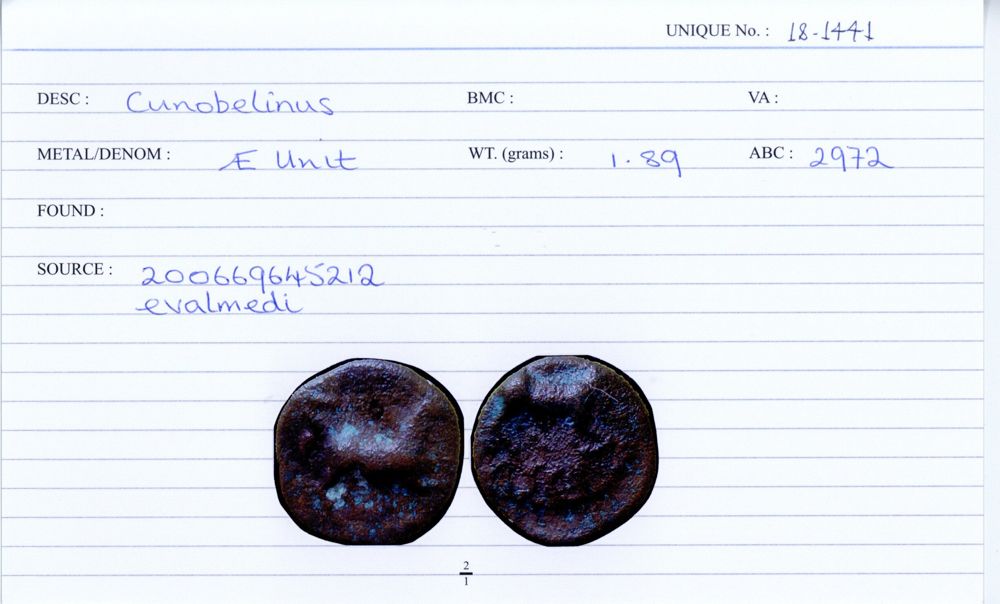 UNIQUE No. : 18-1441
DESC : Cunobelinus BMC : VA :
METAL/DENOM : Æ Unit WT. (grams) : 1.89 ABC : 2972
FOUND :
SOURCE : 200669645212
evalmedi
2
1